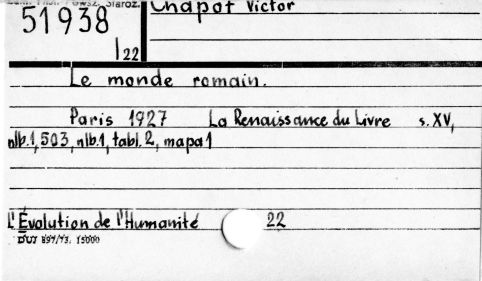 Powsz. Staroż.
51938
Chapot Victor
22
Le monde romain.
Paris 1927 La Renaissance du Livre s. XV,
nlb.1, 503, nlb.1, tabl. 2, mapa 1
L'Évolution de l'Humanité 22
DUJ 897/73. 15000